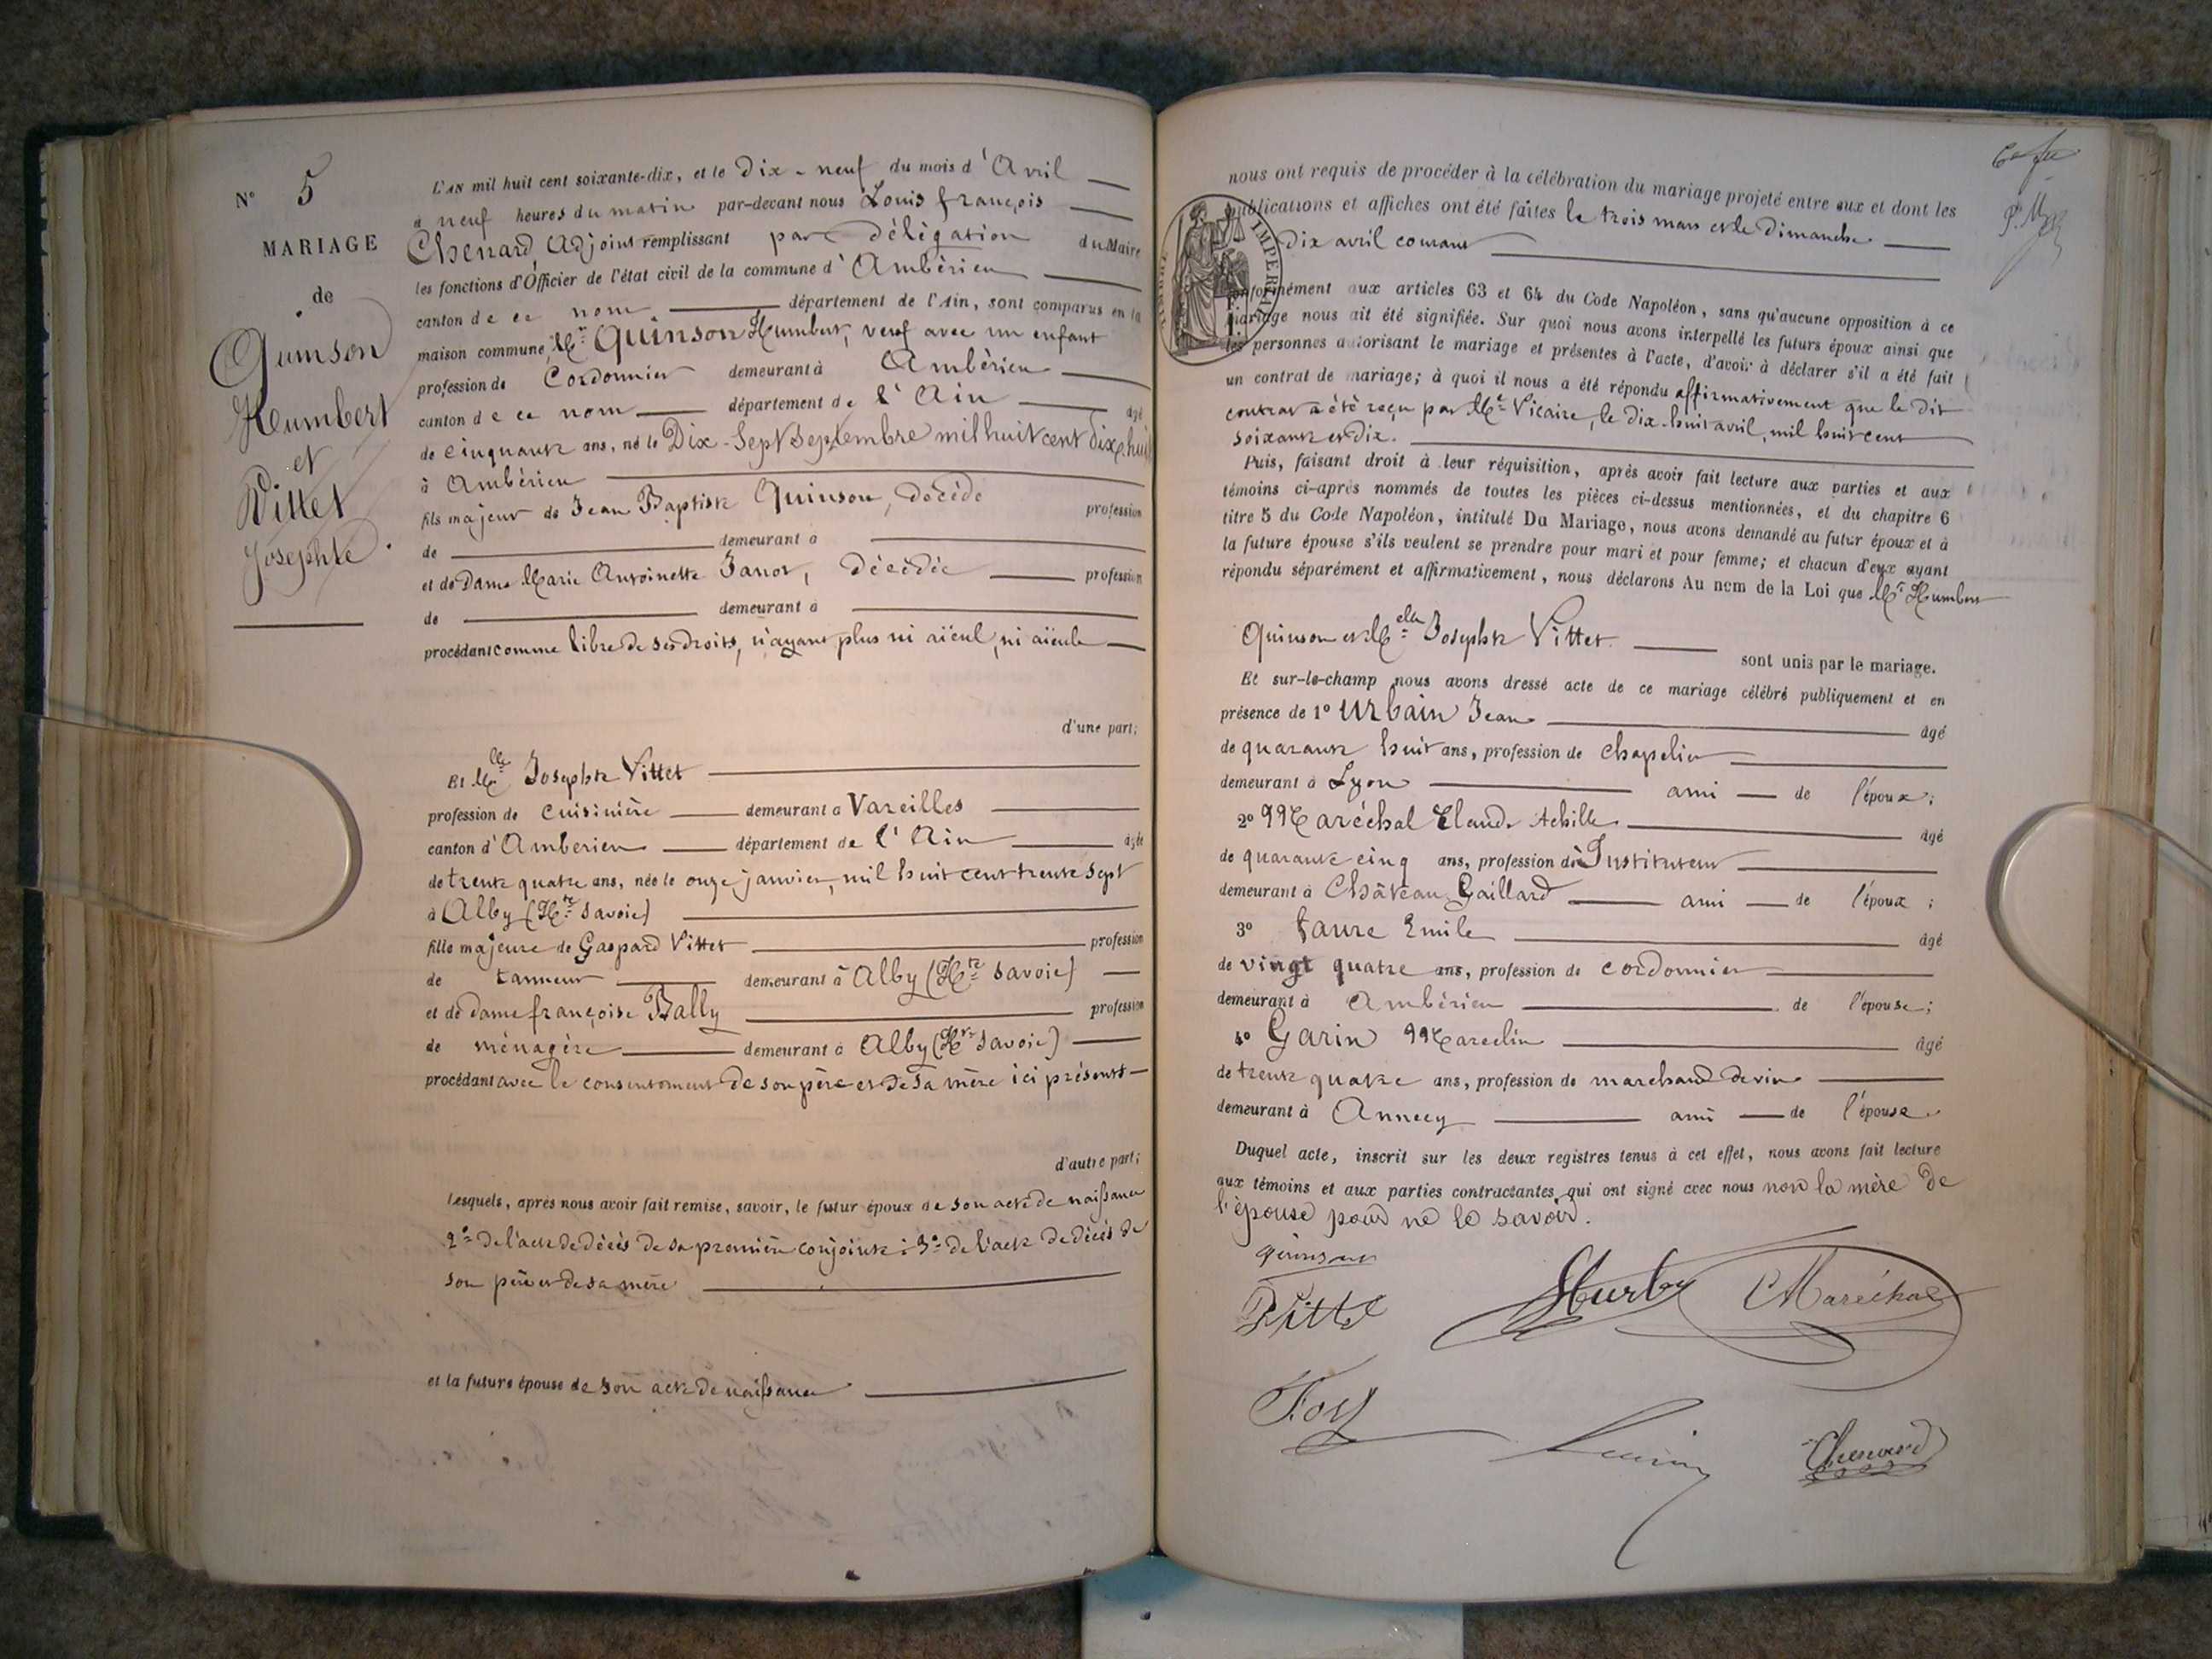 N° 5
MARIAGE
de
Quinson
Humbert
et
Vittet
Josephte
L'AN mil huit cent soixante-dix, et le Dix-neuf du mois d'Avril
à neuf heures du matin par-devant nous Louis françois
Chenard, Adjoint remplissant par délégation du Maire
les fonctions d'Officier de l'état civil de la commune d'Ambérieu
canton de ce nom département de l'Ain, sont comparus en la
maison commune, Mr Quinson Humbert, veuf avec un enfant
profession de Cordonnier demeurant à Ambérieu
canton de ce nom département de l'Ain âgé
de cinquante ans, né le Dix-Sept Septembre mil huit cent dix-huit
à Ambérieu
fils majeur de Jean Baptiste Quinson, décédé profession
de demeurant à
et de Dame Marie Antoinette Janot, décédée profession
de demeurant à
procédant comme libre de ses droits, n'ayant plus ni aïeul, ni aïeule
d'une part;
Et Mlle Josephte Vittet
profession de cuisinière demeurant à Vareilles
canton d'Amberieu département de l'Ain âgée
de trente quatre ans, née le onze janvier, mil huit cent trente sept
à Alby (Hte Savoie)
fille majeure de Gaspard Vittet profession
de tanneur demeurant à Alby (Hte Savoie)
et de dame françoise Bally profession
de ménagère demeurant à Alby (Hte Savoie)
procédant avec le consentement de son père et de sa mère ici présents
d'autre part;
Lesquels, après nous avoir fait remise, savoir, le futur époux de son acte de naissance
2° de l'acte de décès de sa première conjointe; 3° de l'acte de décès de
son père et de sa mère
et la future épouse de son acte de naissance
nous ont requis de procéder à la célébration du mariage projeté entre eux et dont les
publications et affiches ont été faites le trois mars et le Dimanche
dix avril courant
IMPERIAL
conformément aux articles 63 et 64 du Code Napoléon, sans qu'aucune opposition à ce
mariage nous ait été signifiée. Sur quoi nous avons interpellé les futurs époux ainsi que
les personnes autorisant le mariage et présentes à l'acte, d'avoir à déclarer s'il a été fait
un contrat de mariage; à quoi il nous a été répondu affirmativement que le dit
contrat a été reçu par Me Vicaire, le dix-huit avril, mil huit cent
soixante et dix.
Puis, faisant droit à leur réquisition, après avoir fait lecture aux parties et aux
témoins ci-après nommés de toutes les pièces ci-dessus mentionnées, et du chapitre 6
titre 5 du Code Napoléon, intitulé Du Mariage, nous avons demandé au futur époux et à
la future épouse s'ils veulent se prendre pour mari et pour femme; et chacun d'eux ayant
répondu séparément et affirmativement, nous déclarons Au nom de la Loi que Mr Humbert
Quinson et Melle Josephte Vittet. sont unis par le mariage.
Et sur-le-champ nous avons dressé acte de ce mariage célébré publiquement et en
présence de 1° Urbain Jean âgé
de quarante huit ans, profession de chapelier
demeurant à Lyon ami de l'époux;
2° Maréchal Claude Achille âgé
de quarante cinq ans, profession d'Instituteur
demeurant à Château Gaillard ami de l'époux;
3° faure Emile âgé
de vingt quatre ans, profession de cordonnier
demeurant à Ambérieu de l'épouse;
4° Garin Marcelin âgé
de trente quatre ans, profession de marchand de vin
demeurant à Annecy ami de l'épouse.
Duquel acte, inscrit sur les deux registres tenus à cet effet, nous avons fait lecture
aux témoins et aux parties contractantes qui ont signé avec nous non la mère de
l'épouse pour ne le savoir.
Quinson
Vittet
Maréchal
Chenard